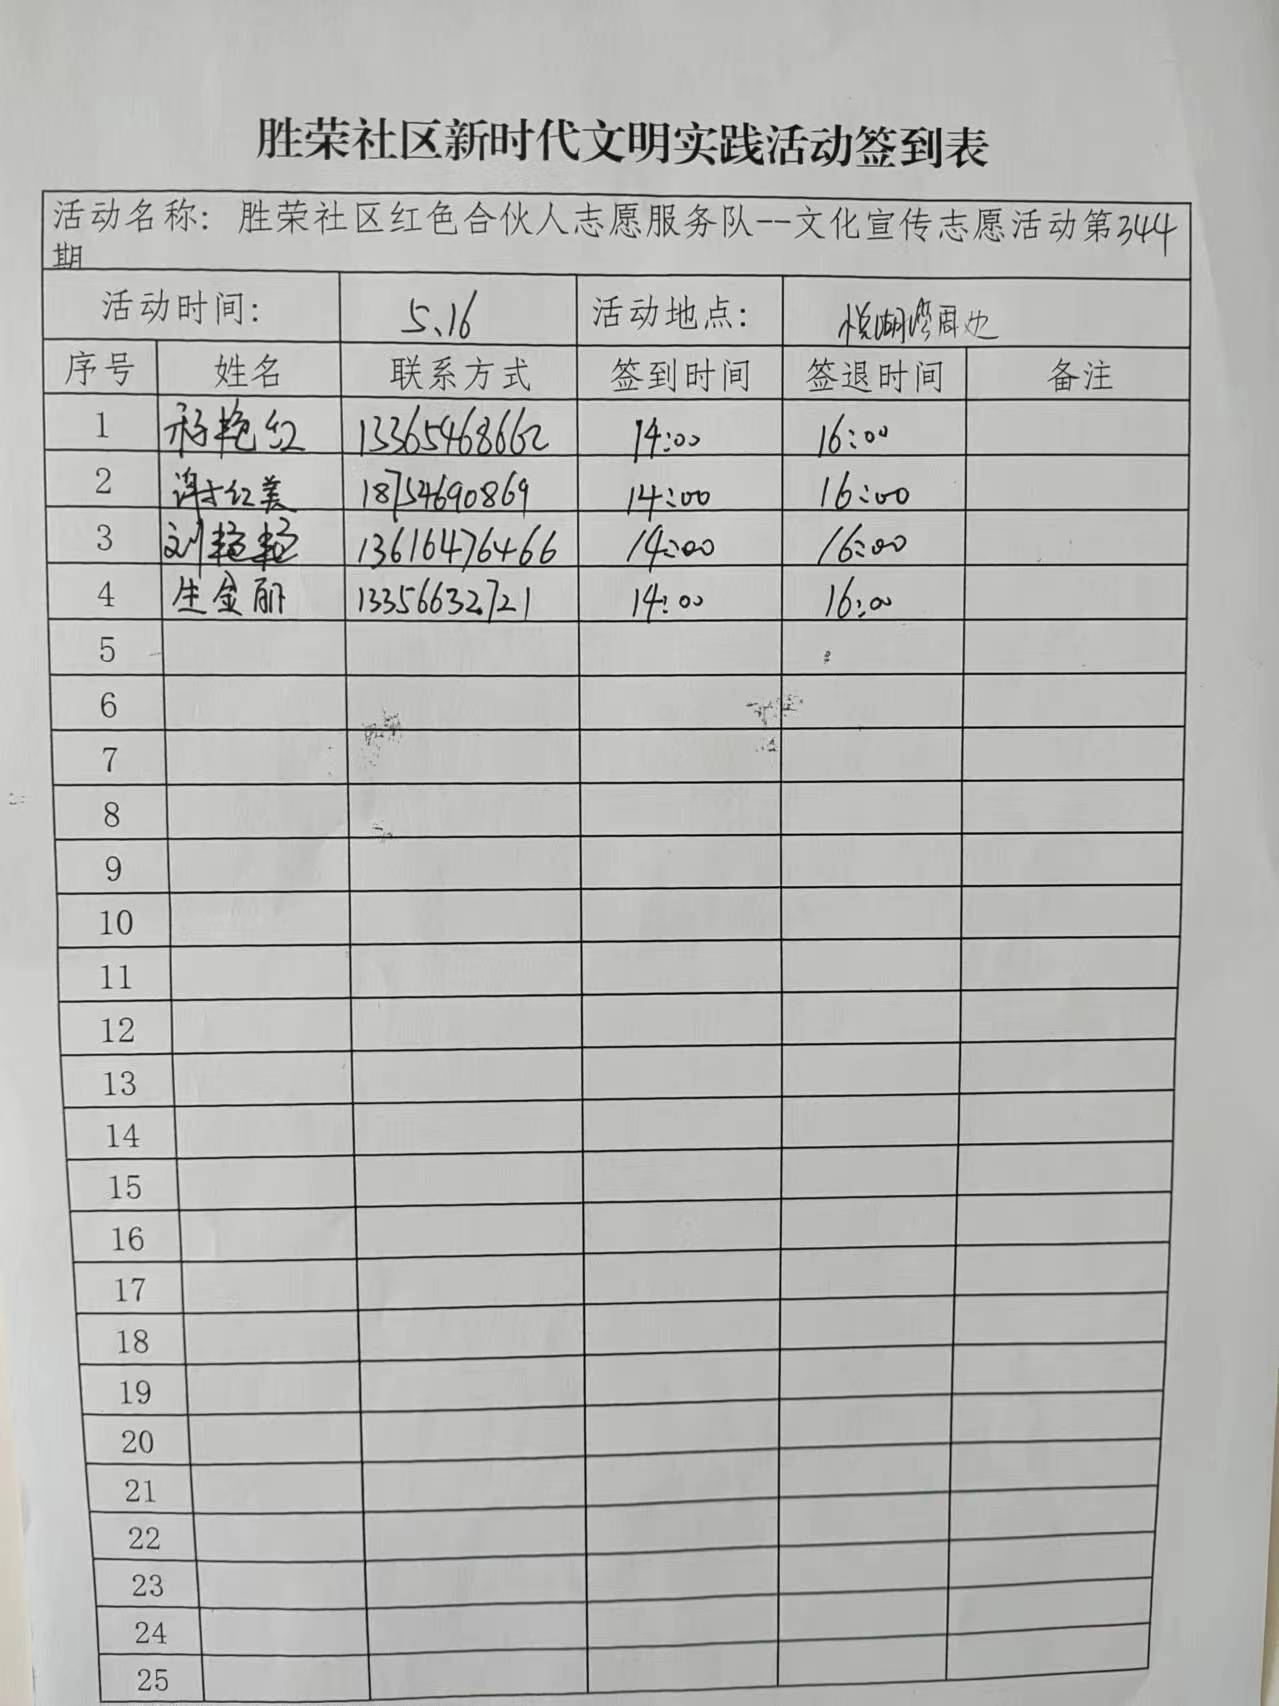 胜荣社区新时代文明实践活动签到表
活动名称：胜荣社区红色合伙人志愿服务队--文化宣传志愿活动第344
期
活动时间： 5.16 活动地点： 悦湖湾周边
序号 姓名 联系方式 签到时间 签退时间 备注
1 艳红 13365468662 14:00 16:00
2 谢红美 18754690869 14:00 16:00
3 刘艳艳 13616476466 14:00 16:00
4 生金丽 13356632721 14:00 16:00
5
6
7
8
9
10
11
12
13
14
15
16
17
18
19
20
21
22
23
24
25